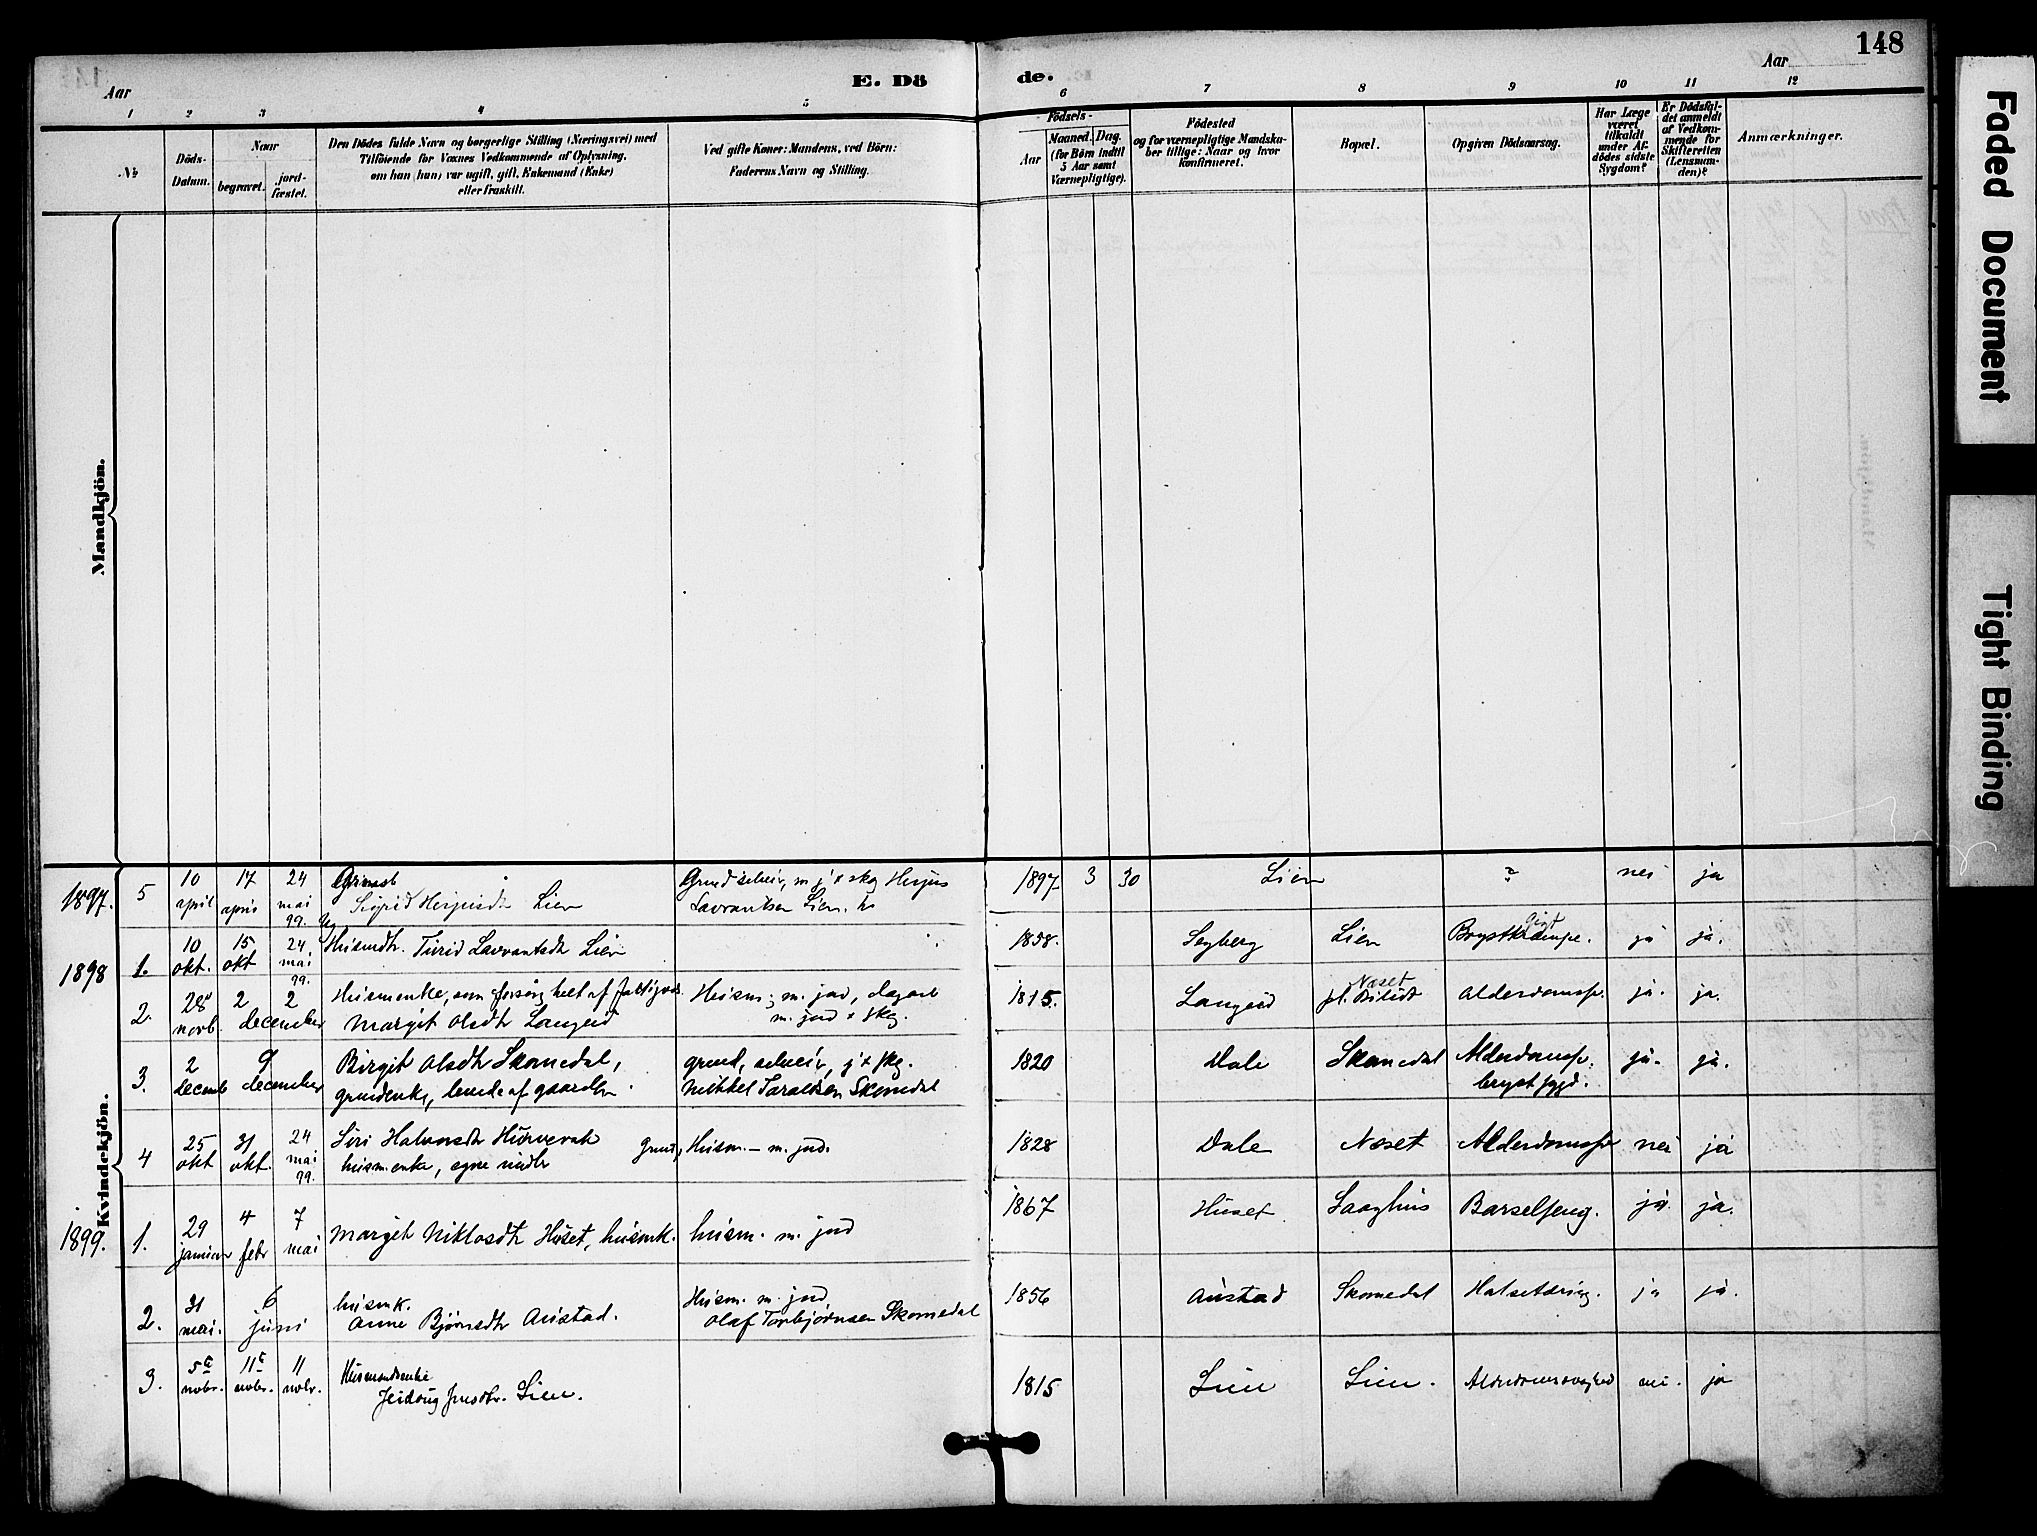 148
Aar
E. Dö
de.
Aar
1 2 3 4 5 6 7 8 9 10 11 12
No
Döds-
Datum.
Naar
begravet.
jord-
fæstet.
Den Dödes fulde Navn og borgerlige Stilling (Næringsvei) med
Tilföiende for Voxnes Vedkommende af Oplysning,
om han (hun) var ugift, gift, Enkemand (Enke)
eller fraskilt.
Ved gifte Koner: Mandens, ved Börn:
Faderens Navn og Stilling.
Födsels-
Aar
Maaned. Dag.
(for Börn indtil
5 Aar samt
Værnepligtige).
Födested
og for værnepligtige Mandska-
ber tillige: Naar og hvor
konfirmeret.
Bopæl.
Opgiven Dödsaarsag.
Har Læge
været
tilkaldt
under Af-
dödes sidste
Sygdom?
Er Dödsfal-
det anmeldt
af Vedkom-
mende for
Skifteretten
(Lensman-
den)?
Anmærkninger.
Mandkjön.
Kvindekjön.
1897. 5 10 april 17 april 24 mai 99.
Sigrid Lien
m j + skog Herjus
Lien.
1897 3 30 Lien ? nei ja
1898 1. 10 okt. 15 okt 24 mai 99.
Turid Lavrantsdtr Lien
1858. Lien Brystkrampe. ja ja.
2. 28 novb. 2 2 december
Husmenke, som helt af
Margit Olsdtr Langeid
Husm: m. jord,
m. jord + skg.
1815. Langeid pl. Næset Alderdomssv. ja. ja.
3. 2 decemb 9 december
Birgit Olsdtr Skomedal,
af gaarden.
grund, selveier, j + skg.
Mikkel Taraldsen Skomedal
1820 Dale Skomedal Alderdomssv. ja. ja.
brystsygd.
4 25 okt 31 okt. 24 mai 99.
Siri
husmenke, egne midler
Husm. – m. jord.
1828 Dale Næset Alderdomssv nei ja
1899. 1. 29 januar 4 febr 7 mai
Margit Niklosdtr Huset, husmk.
husm. m. jord
1867 Huset Saaghus Barselseng. ja. ja.
2. 31 mai. 6 juni
husmk.
Anne Bjørnsdtr Austad.
Husm. m. jord
Olaf Torbjørnsen Skomedal
1856 Austad Skomedal Halsetæring. ja ja.
3. 5te novbr. 11te novbr. 11 novbr.
Husmandsenke
Lien.
1815 Lien Lien. Alderdomssvaghed nei. ja
Faded Document
Tight Binding